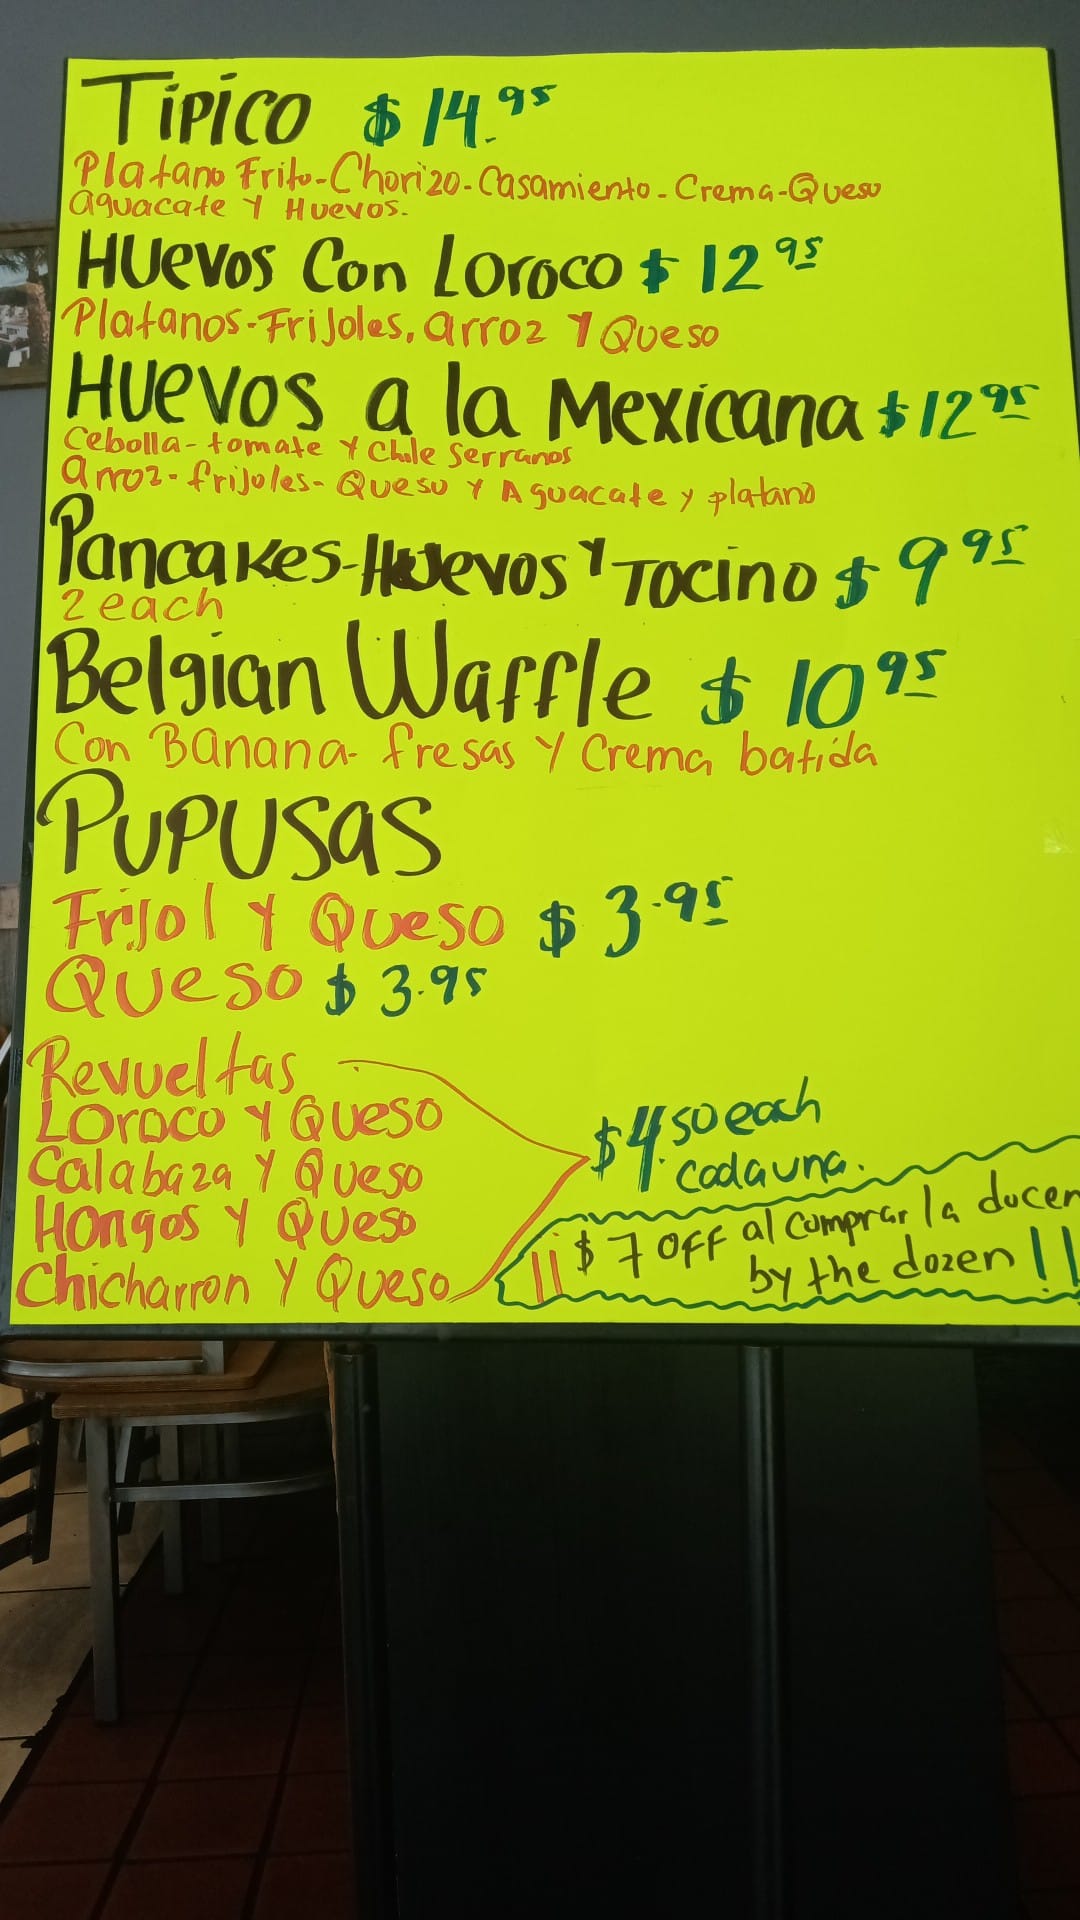 TIPICO $14.95
Platano Frito-Chorizo-Casamiento-Crema-Queso
aguacate Y Huevos.
HUevos Con Loroco $12 95
Platanos-Frijoles, arroz Y Queso
HUevos a la Mexicana $12 95
Cebolla-tomate Y Chile Serranos
arroz-frijoles-Queso Y Aguacate y platano
Pancakes-Huevos Y Tocino $9 95
2 each
Belgian Waffle $10 95
Con Banana-fresas Y Crema batida
PUPUSAS
Frijol Y Queso $3.95
Queso $3.95
Revueltas
Loroco Y Queso
Calabaza Y Queso
Hongos Y Queso
Chicharron Y Queso
$4.50 each
cada una.
!! $7 OFF al comprar la docen
by the dozen !!